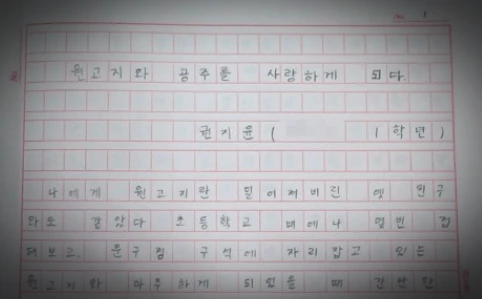 1
원고지와 공주를 사랑하게 되다.
권지윤 ( 1학년 )
나에게 원고지란 잊어져버린 옛 친구
와도 같았다 초등학교 때에나 몇번 접
해보고, 문구점 구석에 자리잡고 있는
원고지와 마주하게 되었을 때